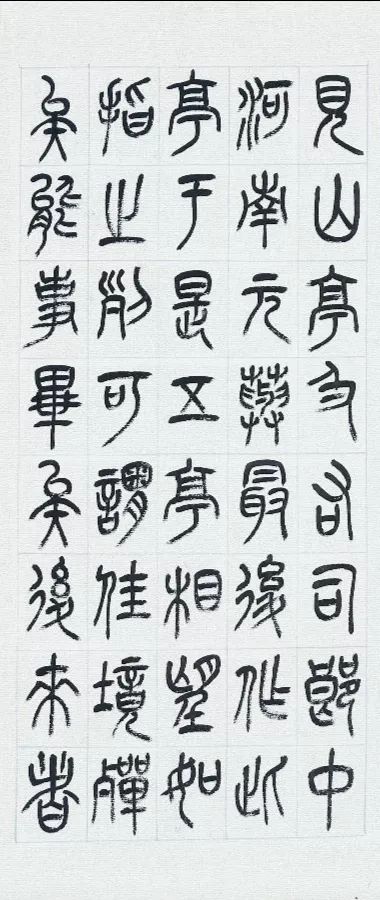 見山亭及右司郎中
河南元藇最後作此
亭于是五亭相望如
指之列可謂佳境殫
矣能事畢矣後來者